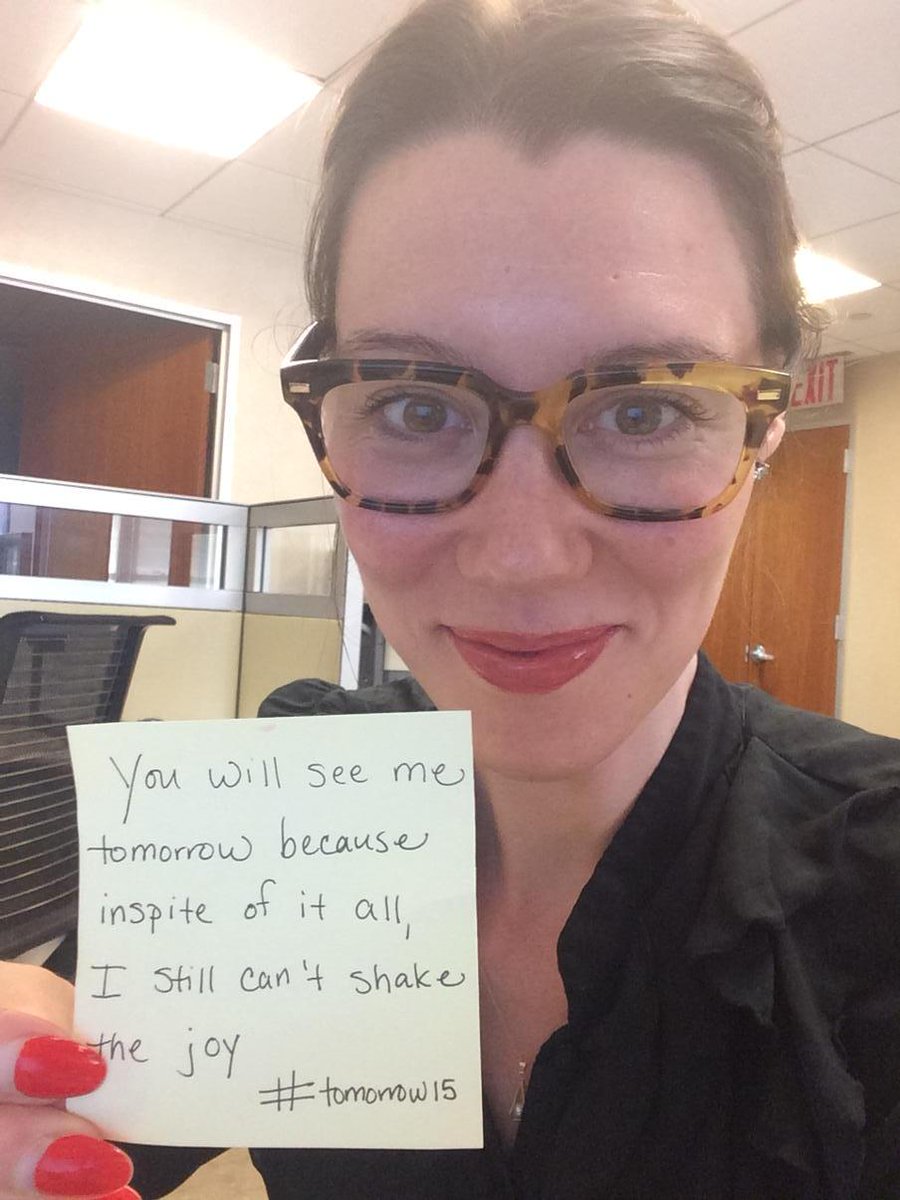 EXIT
You will see me
tomorrow because
inspite of it all,
I still can't shake
the joy
#tomorrow15